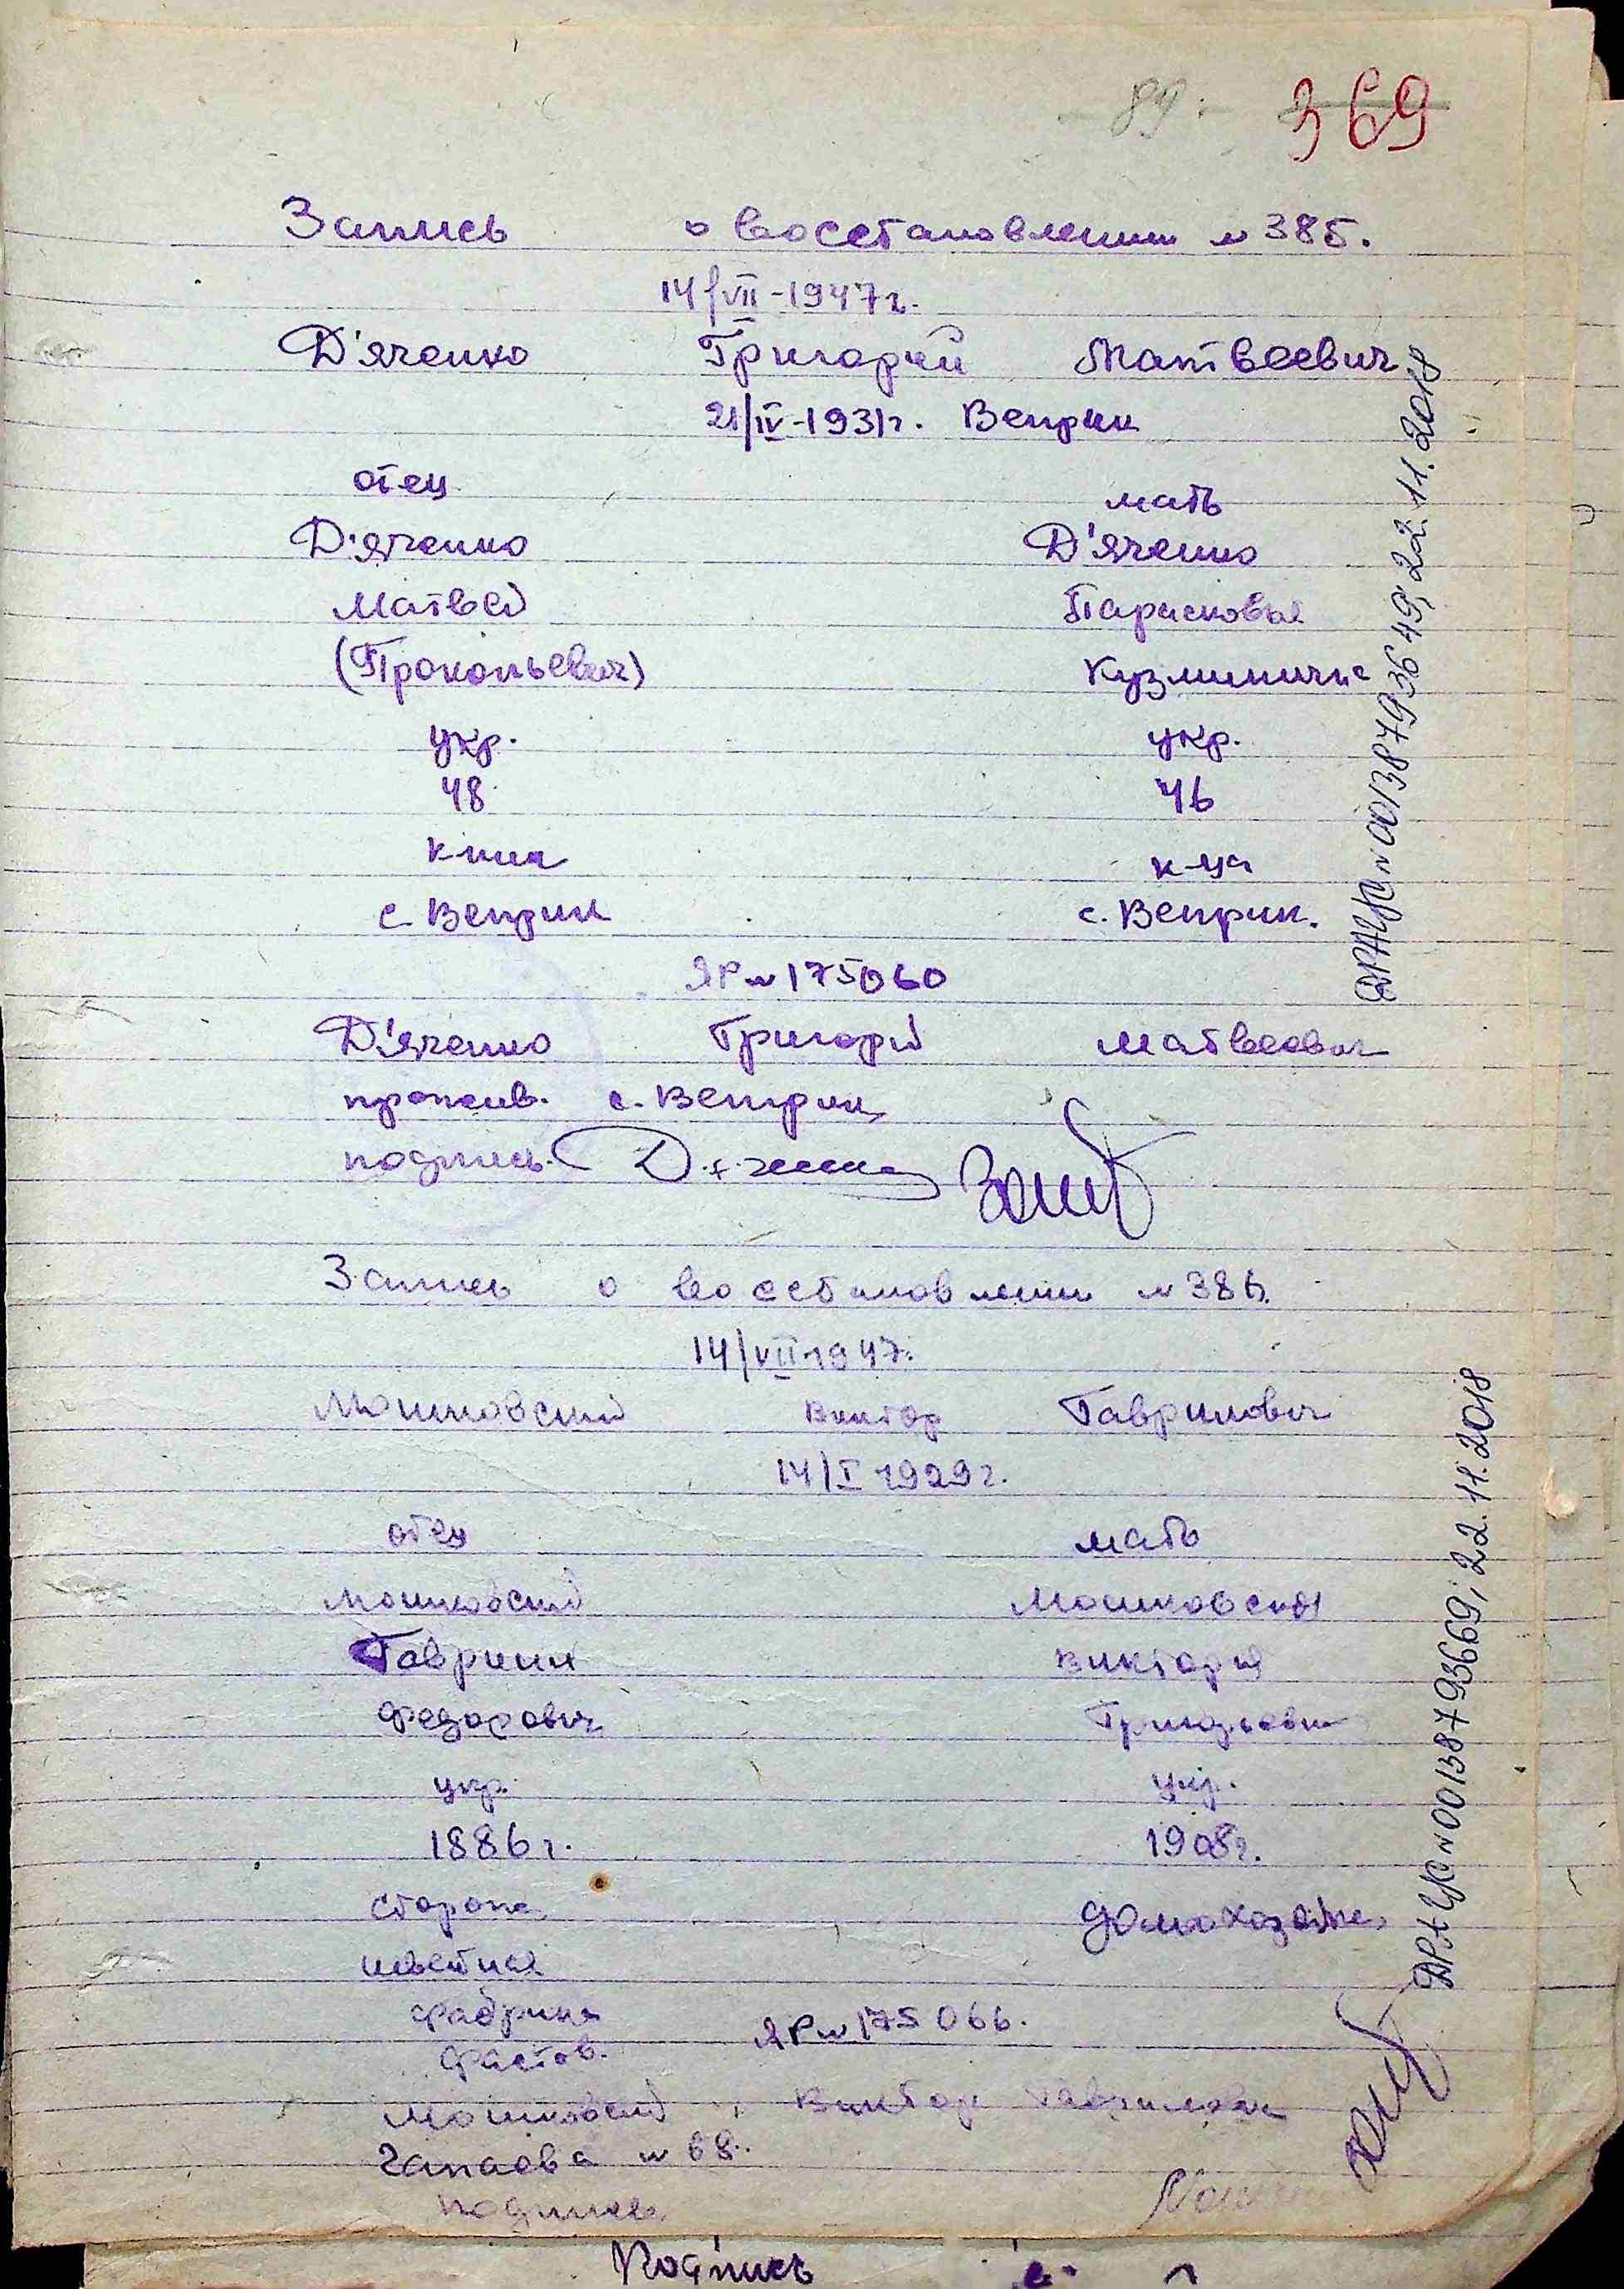 89 369
Запись о восстановлении № 385.
14/VII-1947г.
Д'яченко Григорий Матвеевич
21/IV-1931г. Веприк
отец мать
Д'яченко Д'яченко
Матвей Парасковья
(Прокопьевич) Кузминична
укр. укр.
48 46
к-ник к-ца
с. Веприк с. Веприк.
ЯР № 175060
Д'яченко Григорий Матвеевич
прожив. с. Веприк
подпись. Д.яченко
ДРАЦС № 00138793649, 22.11.2018
Запись о восстановлении № 386.
14/VII-1947.
Мошковский Виктор Гаврилович
14/I 1929г.
отец мать
Мошковский Мошковская
Гаврило Виктория
Федорович Григорьевна
укр. укр.
1886г. 1908г.
сторож домохозяйка
швейная
фабрика
Фастов.
ЯР № 175066.
Мошковский Виктор Гаврилович
Чапаева № 68.
подпись
ДРАЦС № 00138793669; 22.11.2018
Подпись